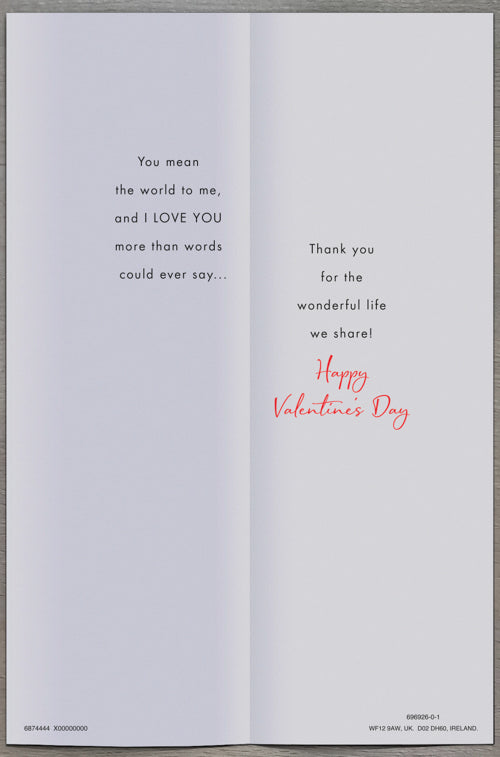 You mean
the world to me,
and I LOVE YOU
more than words
could ever say...
Thank you
for the
wonderful life
we share!
Happy
Valentine's Day
6874444 X00000000
696926-0-1
WF12 9AW, UK. D02 DH60, IRELAND.